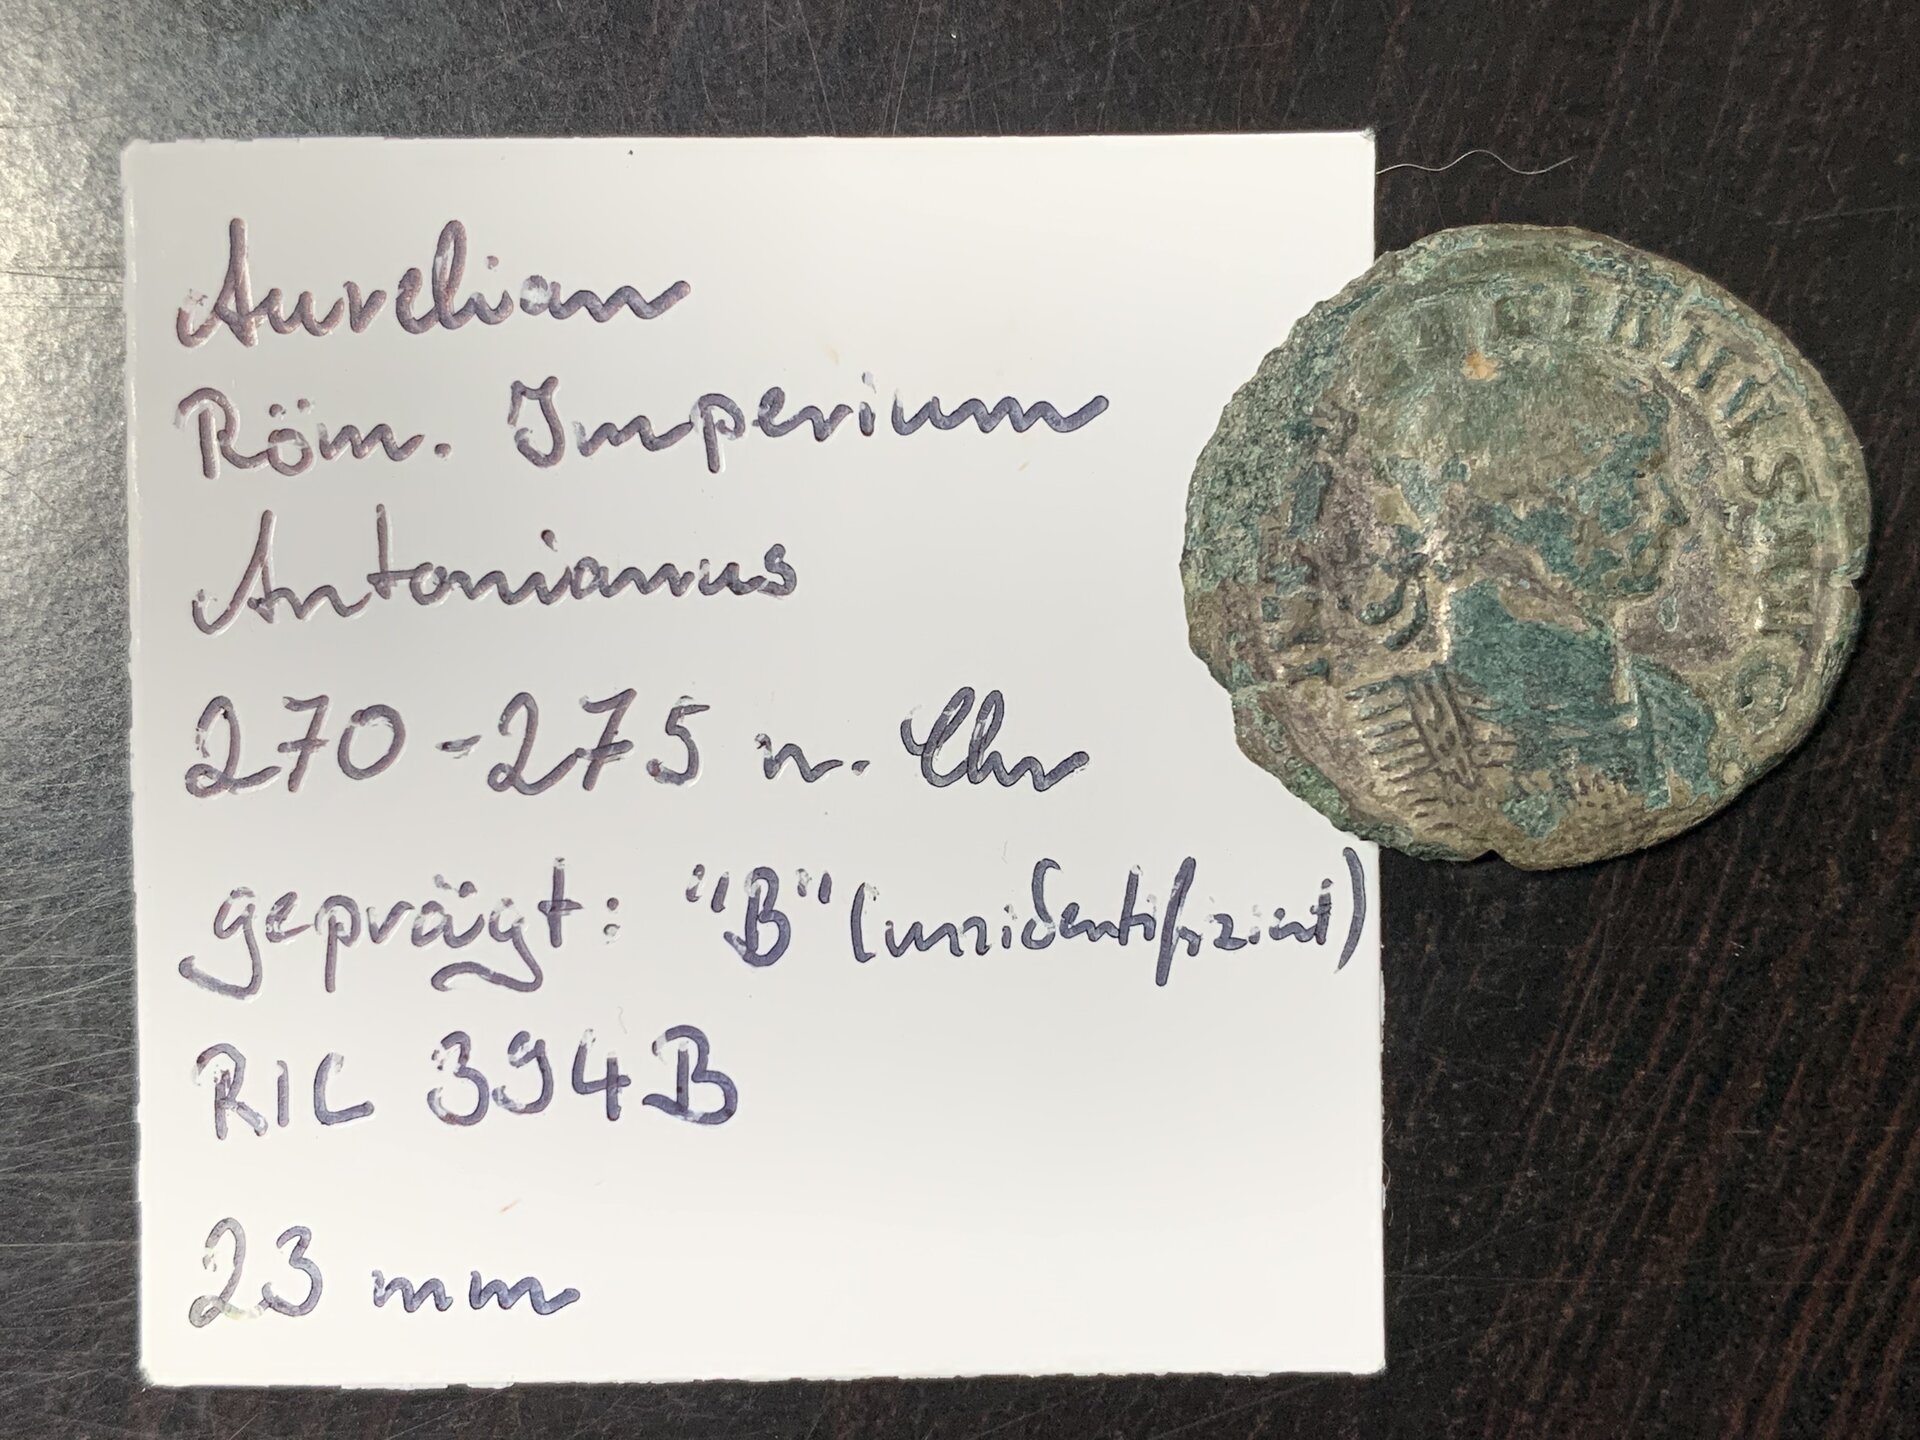 Aurelian
Röm. Imperium
Antonianus
270-275 n. Chr
geprägt: "B" (unidentifiziert)
RIC 394B
23 mm